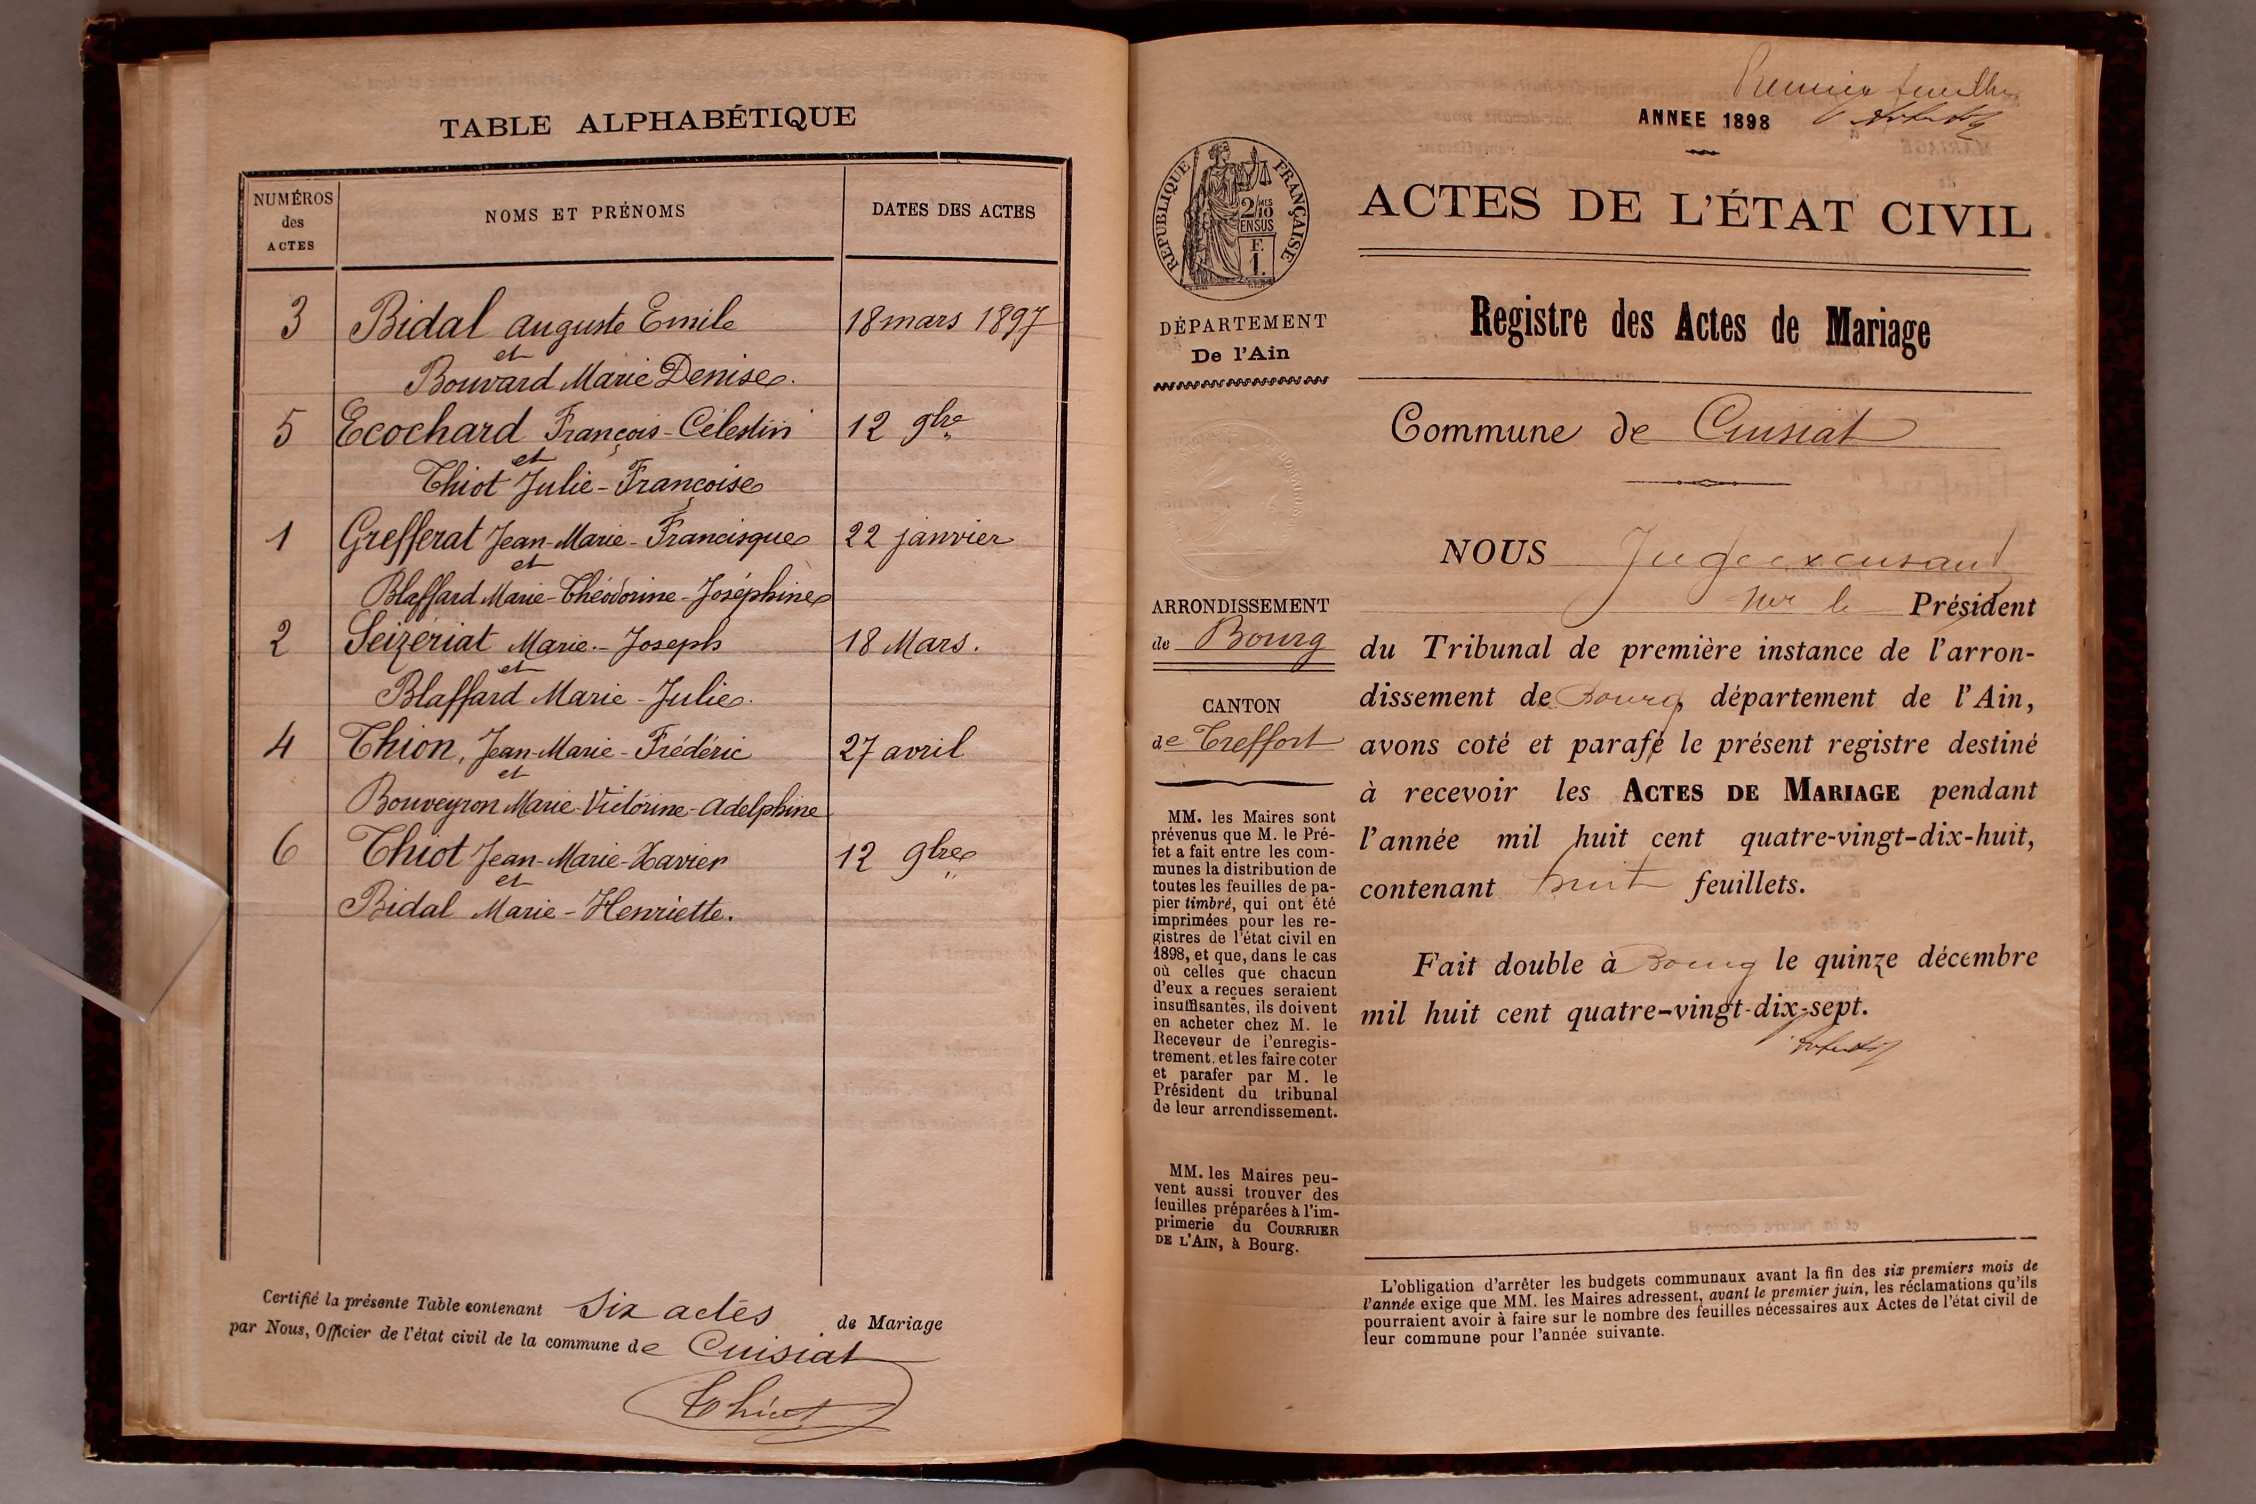 TABLE ALPHABÉTIQUE
NUMÉROS des ACTES
NOMS ET PRÉNOMS
DATES DES ACTES
3 Bidal Auguste Emile 18 mars 1897
et
Bouvard Marie Denise.
5 Ecochard François-Célestin 12 9bre
et
Thiot Julie-Françoise
1 Grefferat Jean-Marie-Francisque 22 janvier
et
Blaffard Marie-Théodorine-Joséphine
2 Seizériat Marie-Joseph 18 Mars.
et
Blaffard Marie-Julie.
4 Thion, Jean-Marie-Frédéric 27 avril
et
Bouveyron Marie-Victorine-Adelphine
6 Thiot Jean-Marie-Xavier 12 9bre
et
Bidal Marie-Henriette.
Certifié la présente Table contenant Six actes de Mariage
par Nous, Officier de l'état civil de la commune de Cuisiat
Thiot
Premier feuillet
ANNEE 1898
RÉPUBLIQUE FRANÇAISE
2/10 MES
EN SUS
F.
1.
DÉPARTEMENT
De l'Ain
ARRONDISSEMENT
de Bourg
CANTON
de Treffort
MM. les Maires sont
prévenus que M. le Pré-
fet a fait entre les com-
munes la distribution de
toutes les feuilles de pa-
pier timbré, qui ont été
imprimées pour les re-
gistres de l'état civil en
1898, et que, dans le cas
où celles que chacun
d'eux a reçues seraient
insuffisantes, ils doivent
en acheter chez M. le
Receveur de l'enregis-
trement. et les faire coter
et parafer par M. le
Président du tribunal
de leur arrondissement.
MM. les Maires peu-
vent aussi trouver des
feuilles préparées à l'im-
primerie du COURRIER
DE L'AIN, à Bourg.
ACTES DE L'ÉTAT CIVIL
Registre des Actes de Mariage
Commune de Cuisiat
NOUS Juge excusant
Mr le Président
du Tribunal de première instance de l'arron-
dissement de Bourg, département de l'Ain,
avons coté et parafé le présent registre destiné
à recevoir les ACTES DE MARIAGE pendant
l'année mil huit cent quatre-vingt-dix-huit,
contenant huit feuillets.
Fait double à Bourg le quinze décembre
mil huit cent quatre-vingt-dix-sept.
L'obligation d'arrêter les budgets communaux avant la fin des six premiers mois de
l'année exige que MM. les Maires adressent, avant le premier juin, les réclamations qu'ils
pourraient avoir à faire sur le nombre des feuilles nécessaires aux Actes de l'état civil de
leur commune pour l'année suivante.